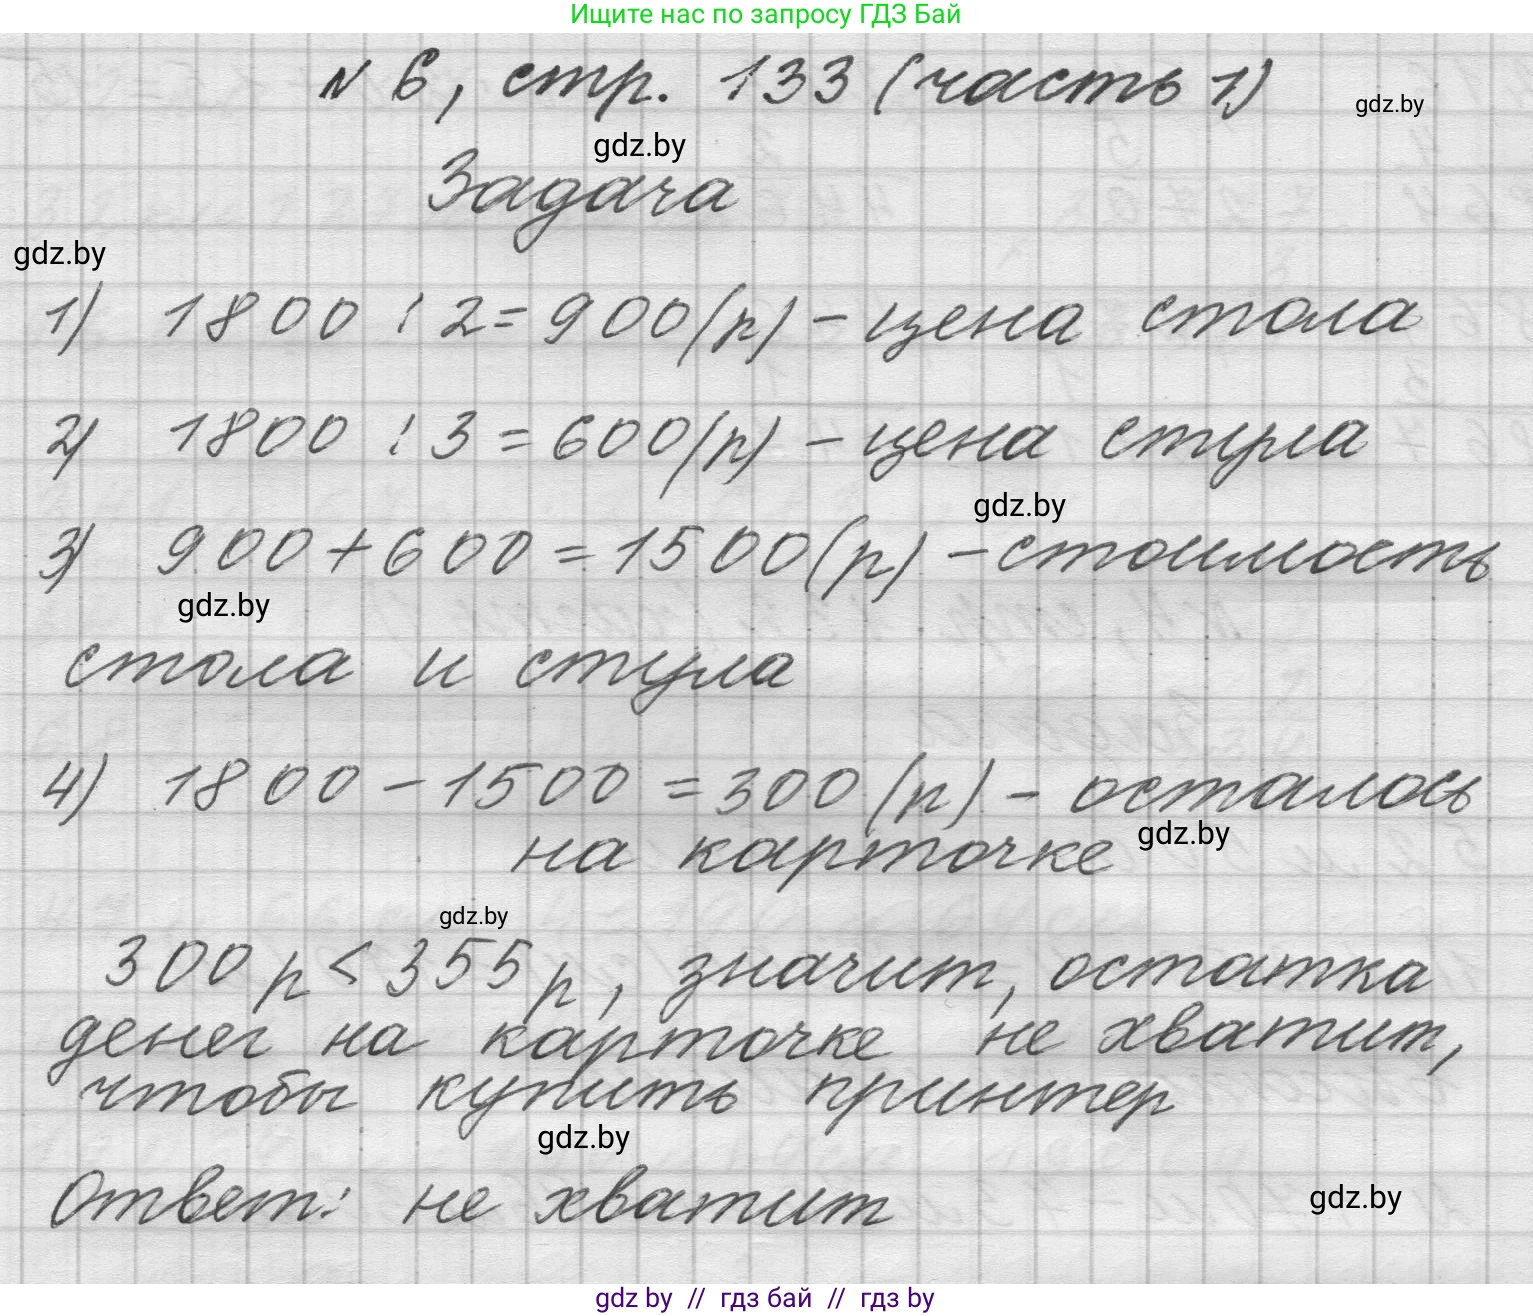 Ищите нас по запросу ГДЗ Бай
№ 6, стр. 133 (часть 1)
gdz.by
gdz.by
Задача
gdz.by
1) 1800 : 2 = 900 (р) - цена стола
2) 1800 : 3 = 600 (р) - цена стула
gdz.by
3) 900 + 600 = 1500 (р) - стоимость
gdz.by
стола и стула
4) 1800 - 1500 = 300 (р) - осталось
на карточке gdz.by
gdz.by
300 р < 355 р, значит, остатка
денег на карточке не хватит,
чтобы купить принтер
gdz.by
Ответ: не хватит
gdz.by
gdz by // гдз бай // гдз by